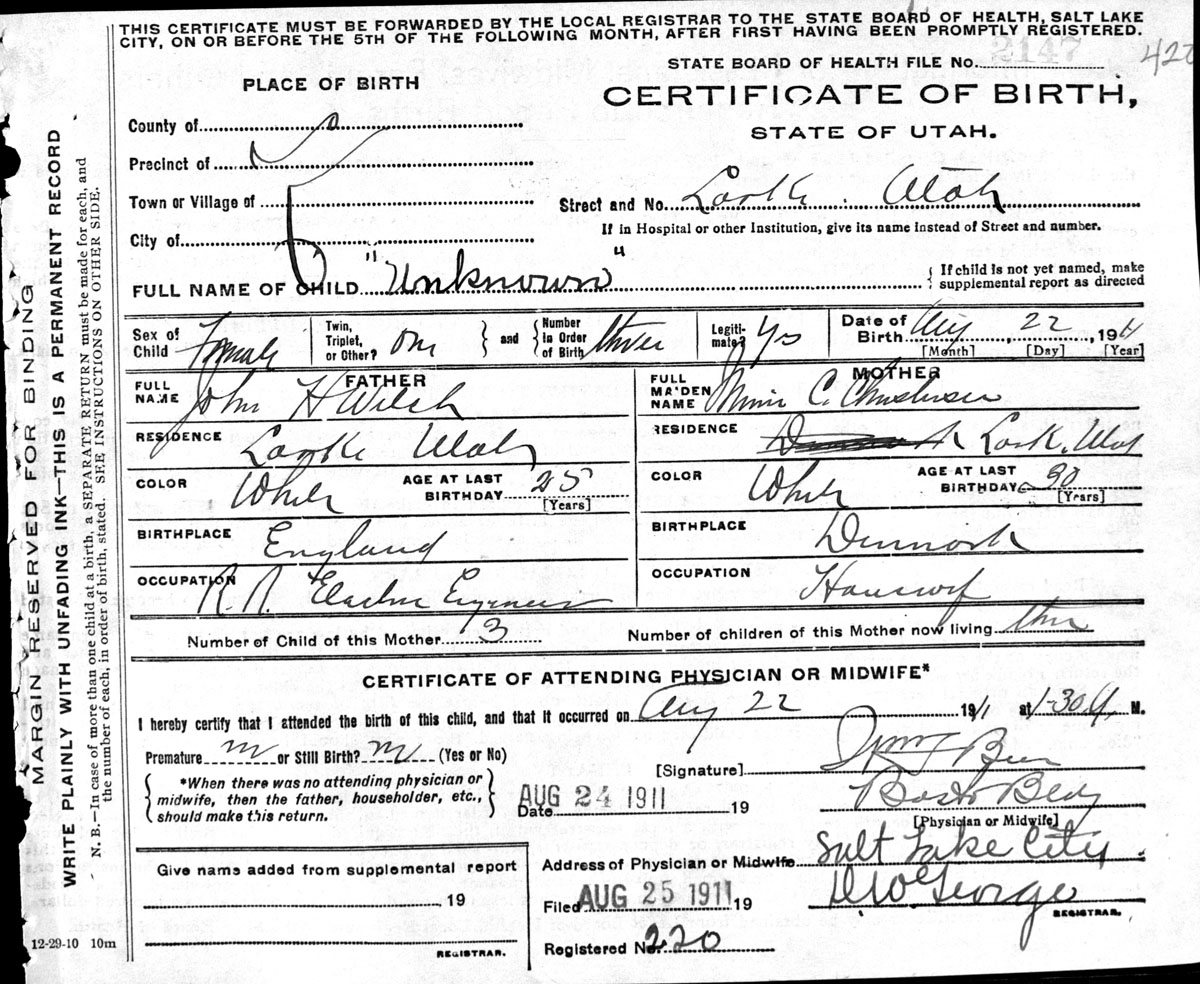 THIS CERTIFICATE MUST BE FORWARDED BY THE LOCAL REGISTRAR TO THE STATE BOARD OF HEALTH, SALT LAKE
CITY, ON OR BEFORE THE 5TH OF THE FOLLOWING MONTH, AFTER FIRST HAVING BEEN PROMPTLY REGISTERED.
STATE BOARD OF HEALTH FILE No. 2147
PLACE OF BIRTH
CERTIFICATE OF BIRTH,
STATE OF UTAH.
County of
Precinct of
Town or Village of
Street and No. Lark. Utah
City of
If in Hospital or other Institution, give its name instead of Street and number.
FULL NAME OF CHILD "Unknown"
If child is not yet named, make
supplemental report as directed
Sex of Child Female
Twin, Triplet, or Other? one and Number in Order of Birth three
Legitimate? Yes
Date of Birth Aug 22, 1911
[Month] [Day] [Year]
FATHER
FULL NAME John H Welch
RESIDENCE Larke Utah
COLOR White AGE AT LAST BIRTHDAY 25 [Years]
BIRTHPLACE England
OCCUPATION R. R. Electric Engineer
MOTHER
FULL MAIDEN NAME C. Christensen
RESIDENCE Lark. Utah
COLOR White AGE AT LAST BIRTHDAY [Years]
BIRTHPLACE Denmark
OCCUPATION Housewif
Number of Child of this Mother 3
Number of children of this Mother now living three
CERTIFICATE OF ATTENDING PHYSICIAN OR MIDWIFE*
I hereby certify that I attended the birth of this child, and that it occurred on Aug 22 1911 at 1-30 M.
Premature or Still Birth? (Yes or No)
[Signature]
*When there was no attending physician or
midwife, then the father, householder, etc.,
should make this return.
Date AUG 24 1911 19
[Physician or Midwife]
Address of Physician or Midwife Salt Lake City.
Give name added from supplemental report
19
REGISTRAR.
Filed AUG 25 1911 19
George
REGISTRAR.
Registered No. 220
12-29-10 10m
MARGIN RESERVED FOR BINDING
WRITE PLAINLY WITH UNFADING INK—THIS IS A PERMANENT RECORD
N. B.—In case of more than one child at a birth, a SEPARATE RETURN must be made for each, and
the number of each, in order of birth, stated. SEE INSTRUCTIONS ON OTHER SIDE.